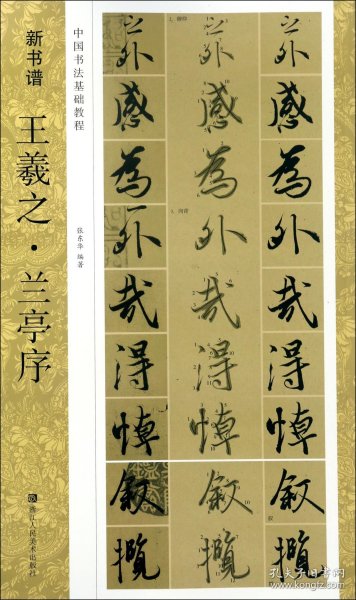 新书谱
王羲之·兰亭序
中国书法基础教程
张东华 编著
浙江人民美术出版社
外 外 外
感 感 感
為 為 為
外 外 外
哉 哉 哉
得 得 得
悼 悼 悼
叙 叙 叙
攬 攬 攬
孔夫子旧书网